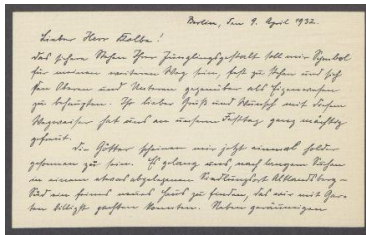 Berlin, den 9. April 1932.
Lieber Herr Kolbe!
Das sichere Stehen Ihrer Jünglingsgestalt soll mir Symbol
für meinen weiteren Weg sein, fest zu stehen und sich
den Oberen und Unteren gegenüber als Eigenwesen
zu behaupten. Ihr lieber Gruß und Wunsch mit diesem
Wegweiser hat uns an unserm Festtag ganz mächtig
gefreut.
Die Götter scheinen mir jetzt einmal holder
gesonnen zu sein. Es gelang uns, nach langem Suchen
in einem etwas abgelegenen Siedlungsort
Süd ein feines neues Haus zu finden, das wir mit Gar-
ten billigst pachten konnten. Neben geräumigen